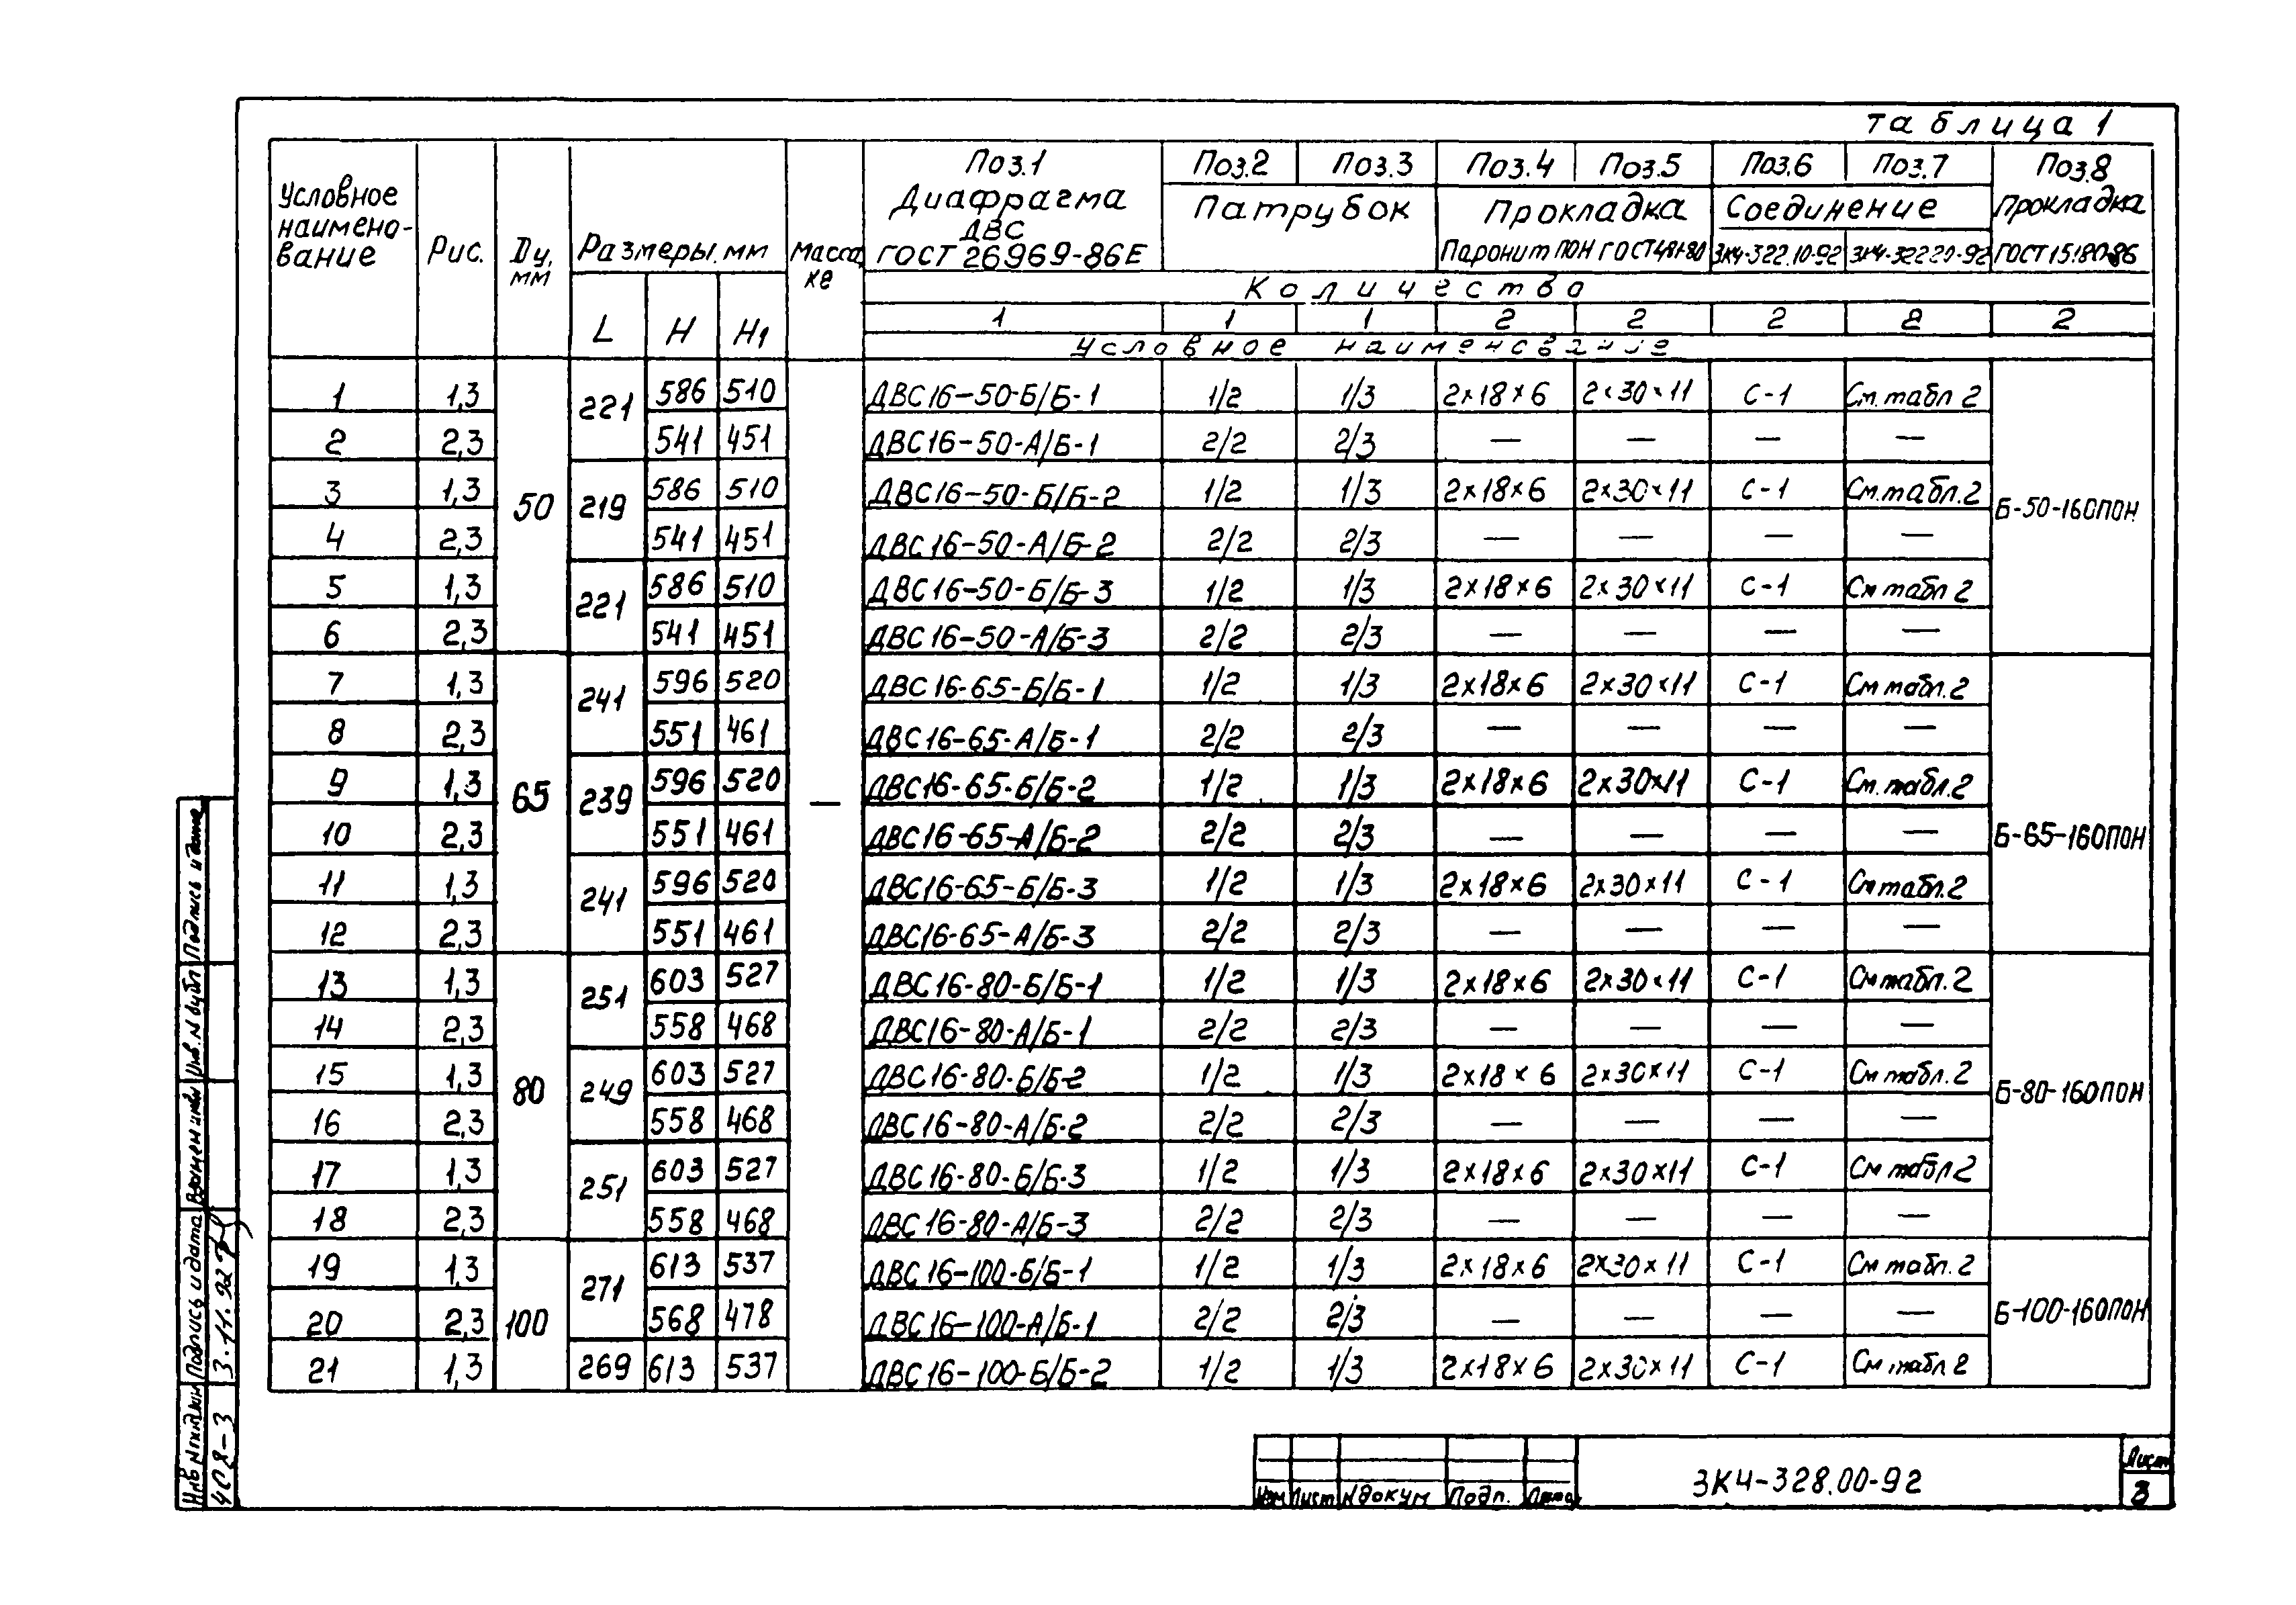 таблица 1
Условное наимено-вание Рис. Dу, мм Размеры, мм Масса, кг Поз.1 Диафрагма ДВС ГОСТ 26969-86Е Поз.2 Поз.3 Патрубок Поз.4 Поз.5 Прокладка Паронит ПОН ГОСТ 481-80 Поз.6 Поз.7 Соединение ЗК4-322.10-92 ЗК4-322 20-92 Поз.8 Прокладка ГОСТ 15180-86
L H H1
Количество
1 1 1 2 2 2 8 2
Условное наименование
1 1,3 50 221 586 510 — ДВС16-50-Б/Б-1 1/2 1/3 2×18×6 2×30×11 С-1 См.табл 2 Б-50-160ПОН
2 2,3 541 451 ДВС16-50-А/Б-1 2/2 2/3 — — — —
3 1,3 219 586 510 ДВС16-50-Б/Б-2 1/2 1/3 2×18×6 2×30×11 С-1 См.табл.2
4 2,3 541 451 ДВС16-50-А/Б-2 2/2 2/3 — — — —
5 1,3 221 586 510 ДВС16-50-Б/Б-3 1/2 1/3 2×18×6 2×30×11 С-1 См табл 2
6 2,3 541 451 ДВС16-50-А/Б-3 2/2 2/3 — — — —
7 1,3 65 241 596 520 ДВС16-65-Б/Б-1 1/2 1/3 2×18×6 2×30×11 С-1 См табл.2 Б-65-160ПОН
8 2,3 551 461 ДВС16-65-А/Б-1 2/2 2/3 — — — —
9 1,3 239 596 520 ДВС16-65-Б/Б-2 1/2 1/3 2×18×6 2×30×11 С-1 См.табл.2
10 2,3 551 461 ДВС16-65-А/Б-2 2/2 2/3 — — — —
11 1,3 241 596 520 ДВС16-65-Б/Б-3 1/2 1/3 2×18×6 2×30×11 С-1 См табл.2
12 2,3 551 461 ДВС16-65-А/Б-3 2/2 2/3 — — — —
13 1,3 80 251 603 527 ДВС16-80-Б/Б-1 1/2 1/3 2×18×6 2×30×11 С-1 См табл.2 Б-80-160ПОН
14 2,3 558 468 ДВС16-80-А/Б-1 2/2 2/3 — — — —
15 1,3 249 603 527 ДВС16-80-Б/Б-2 1/2 1/3 2×18×6 2×30×11 С-1 См табл.2
16 2,3 558 468 ДВС16-80-А/Б-2 2/2 2/3 — — — —
17 1,3 251 603 527 ДВС16-80-Б/Б-3 1/2 1/3 2×18×6 2×30×11 С-1 См табл 2
18 2,3 558 468 ДВС16-80-А/Б-3 2/2 2/3 — — — —
19 1,3 100 271 613 537 ДВС16-100-Б/Б-1 1/2 1/3 2×18×6 2×30×11 С-1 См табл.2 Б-100-160ПОН
20 2,3 568 478 ДВС16-100-А/Б-1 2/2 2/3 — — — —
21 1,3 269 613 537 ДВС16-100-Б/Б-2 1/2 1/3 2×18×6 2×30×11 С-1 См табл 2
Изм Лист N докум Подп. Дата
ЗК4-328.00-92
Лист
3
Подпись и дата
Инв. N дубл
Взамен инв N
Подпись и дата
3.11.92
Инв N подл
408-3